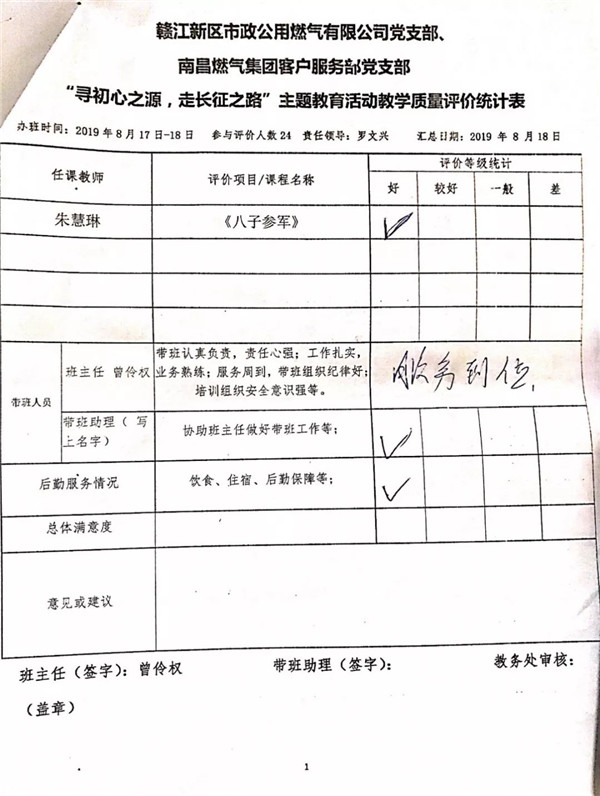 赣江新区市政公用燃气有限公司党支部、
南昌燃气集团客户服务部党支部
“寻初心之源，走长征之路”主题教育活动教学质量评价统计表
办班时间：2019年8月17日-18日 参与评价人数24 责任领导：罗文兴 汇总日期：2019年8月18日
任课教师 评价项目/课程名称 评价等级统计
好 较好 一般 差
朱慧琳 《八子参军》 ✓
带班人员
班主任 曾伶权
带班认真负责，责任心强；工作扎实，
业务熟练；服务周到，带班组织纪律好；
培训组织安全意识强等。
服务到位.
带班助理（ 写
上名字）
协助班主任做好带班工作等； ✓
后勤服务情况 饮食、住宿、后勤保障等； ✓
总体满意度
意见或建议
班主任（签字）：曾伶权 带班助理（签字）： 教务处审核：
（盖章）
1